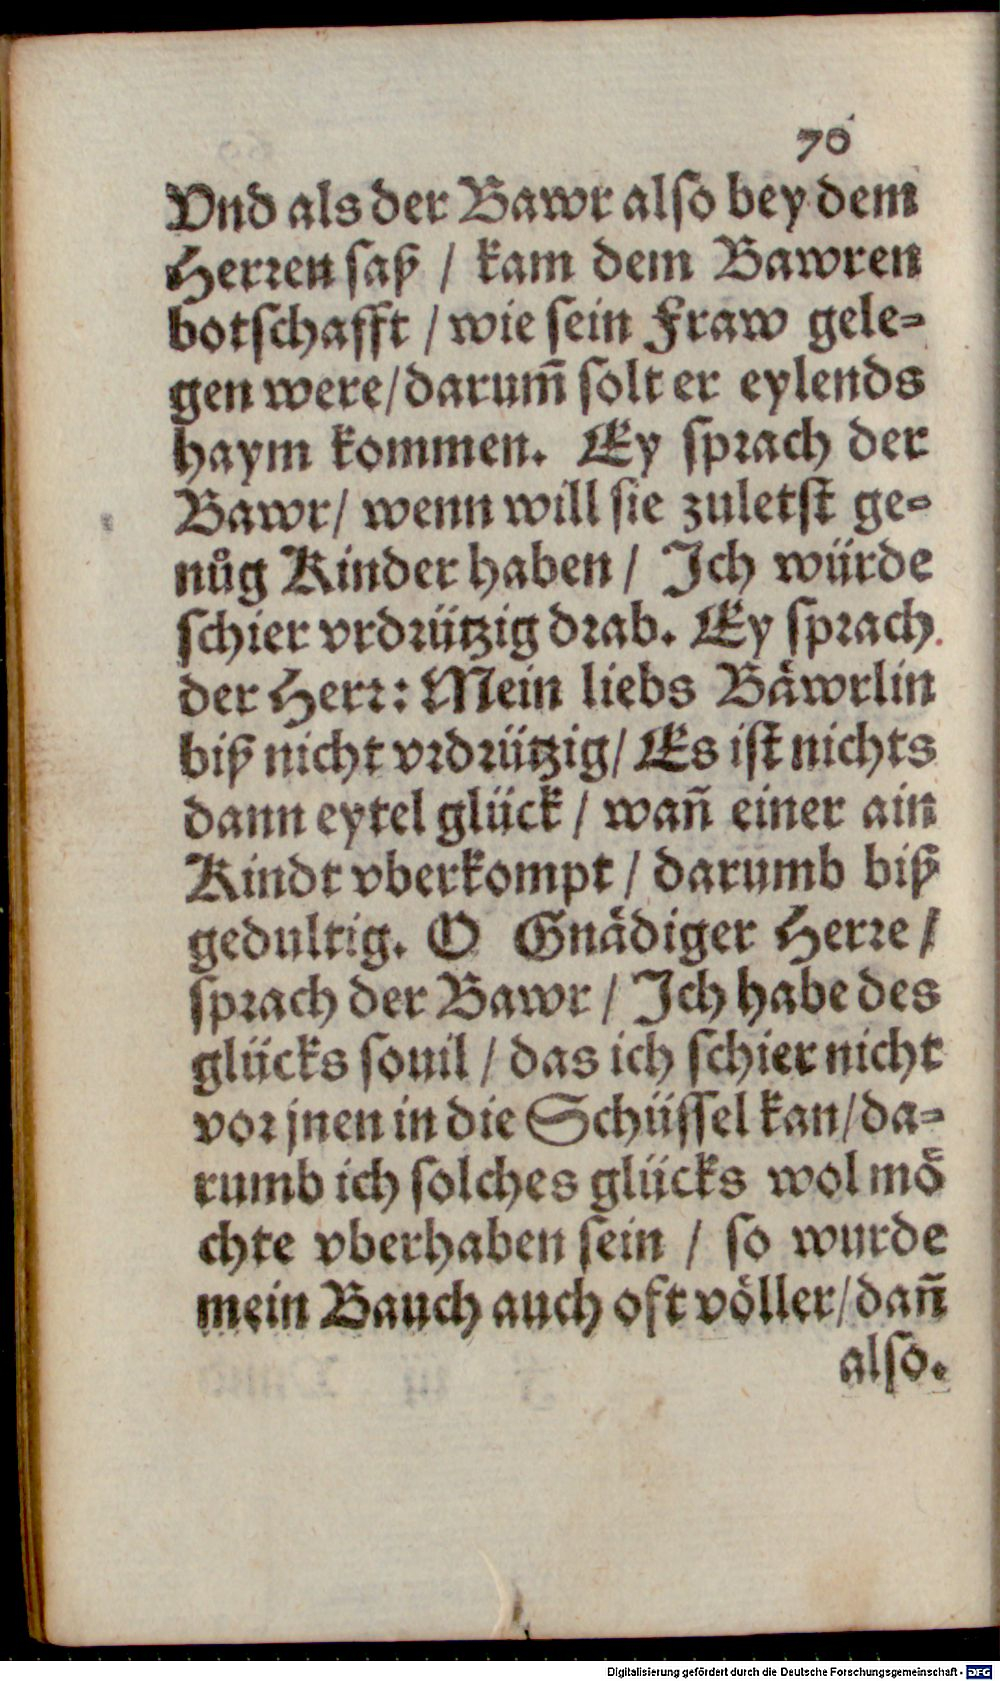 70
Vnd als der Bawr also bey dem
Herren saß / kam dem Bawren
botschafft / wie sein Fraw gele-
gen were/ darum̃ solt er eylends
haym kommen. Ey sprach der
Bawr/ wenn will sie zuletst ge-
nůg Kinder haben / Ich würde
schier vrdrützig drab. Ey sprach
der Herr: Mein liebs Bäwrlin
biß nicht vrdrützig/ Es ist nichts
dann eytel glück / wañ einer ain
Kindt vberkompt / darumb biß
gedultig. O Gnädiger Herre /
sprach der Bawr / Ich habe des
glücks souil / das ich schier nicht
vor jnen in die Schüssel kan/ da-
rumb ich solches glücks wol mö
chte vberhaben sein / so wurde
mein Bauch auch oft völler/ dañ
also.
Digitalisierung gefördert durch die Deutsche Forschungsgemeinschaft - DFG